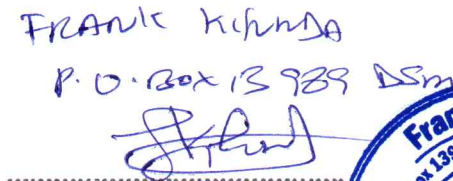 FRANK KIFUNDA
P.O.BOX 13989 DSM
Fran
ox 139